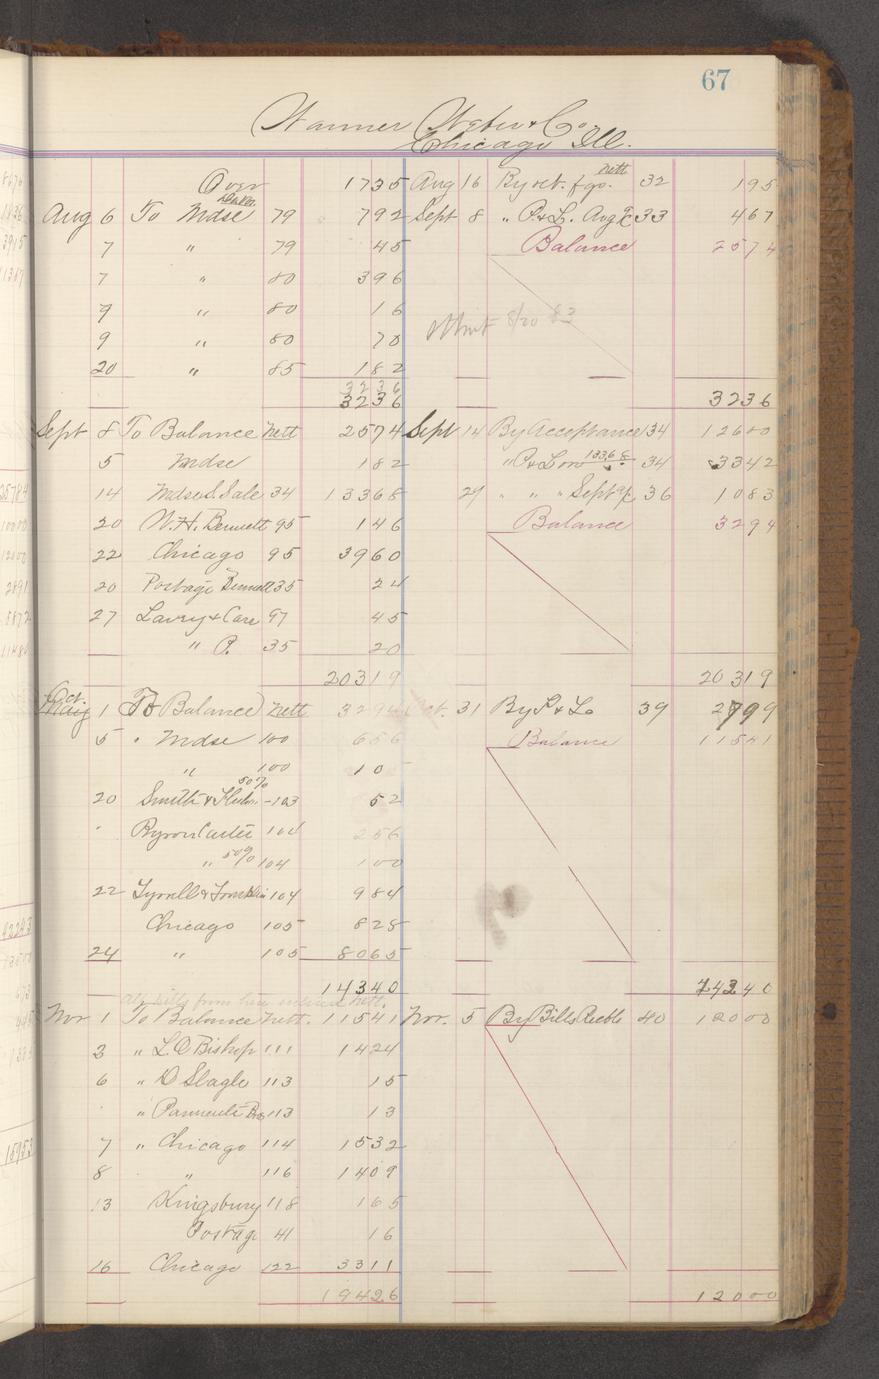 67
Warner Weber & Co
Chicago Ill.
Over 1735 Aug 16 By ret. fgo. nett 32 195
Aug 6 To Mdse 79 792 Sept 8 " P. & L. Aug 33 467
7 " 79 45 Balance 2574
7 " 80 396
9 " 80 16
9 " 80 70
20 " 85 182
3236
3236 3236
Sept 8 To Balance Nett 2574 Sept 14 By Acceptance 34 12600
5 Mdse 182 " P & L on 13368 34 3342
14 Mdse S. Sale 34 13368 29 " " " Sept 36 1083
20 W. H. Bennett 95 146 Balance 3294
22 Chicago 95 3960
20 Postage Bennett 35 24
27 Lavry & Care 97 45
" P. 35 20
20319 20319
Oct. 1 To Balance Nett 3294 Oct. 31 By P & L 39 2799
5 " Mdse 100 656 Balance 11541
" 100 105
20 Smith & 50% 103 52
" Byron Carter 104 256
" 50% 104 100
22 Tyrrell & 104 984
Chicago 105 828
24 " 105 8065
14340 14340
All bills from here nett.
Nov 1 To Balance nett. 11541 Nov. 5 By Bills Recble 40 12000
3 " L. C. Bishop 111 1424
6 " D Slagle 113 15
" " Bro 113 13
7 " Chicago 114 1532
8 " 116 1409
13 Kingsbury 118 165
Postag 41 16
16 Chicago 122 3311
19426 12000